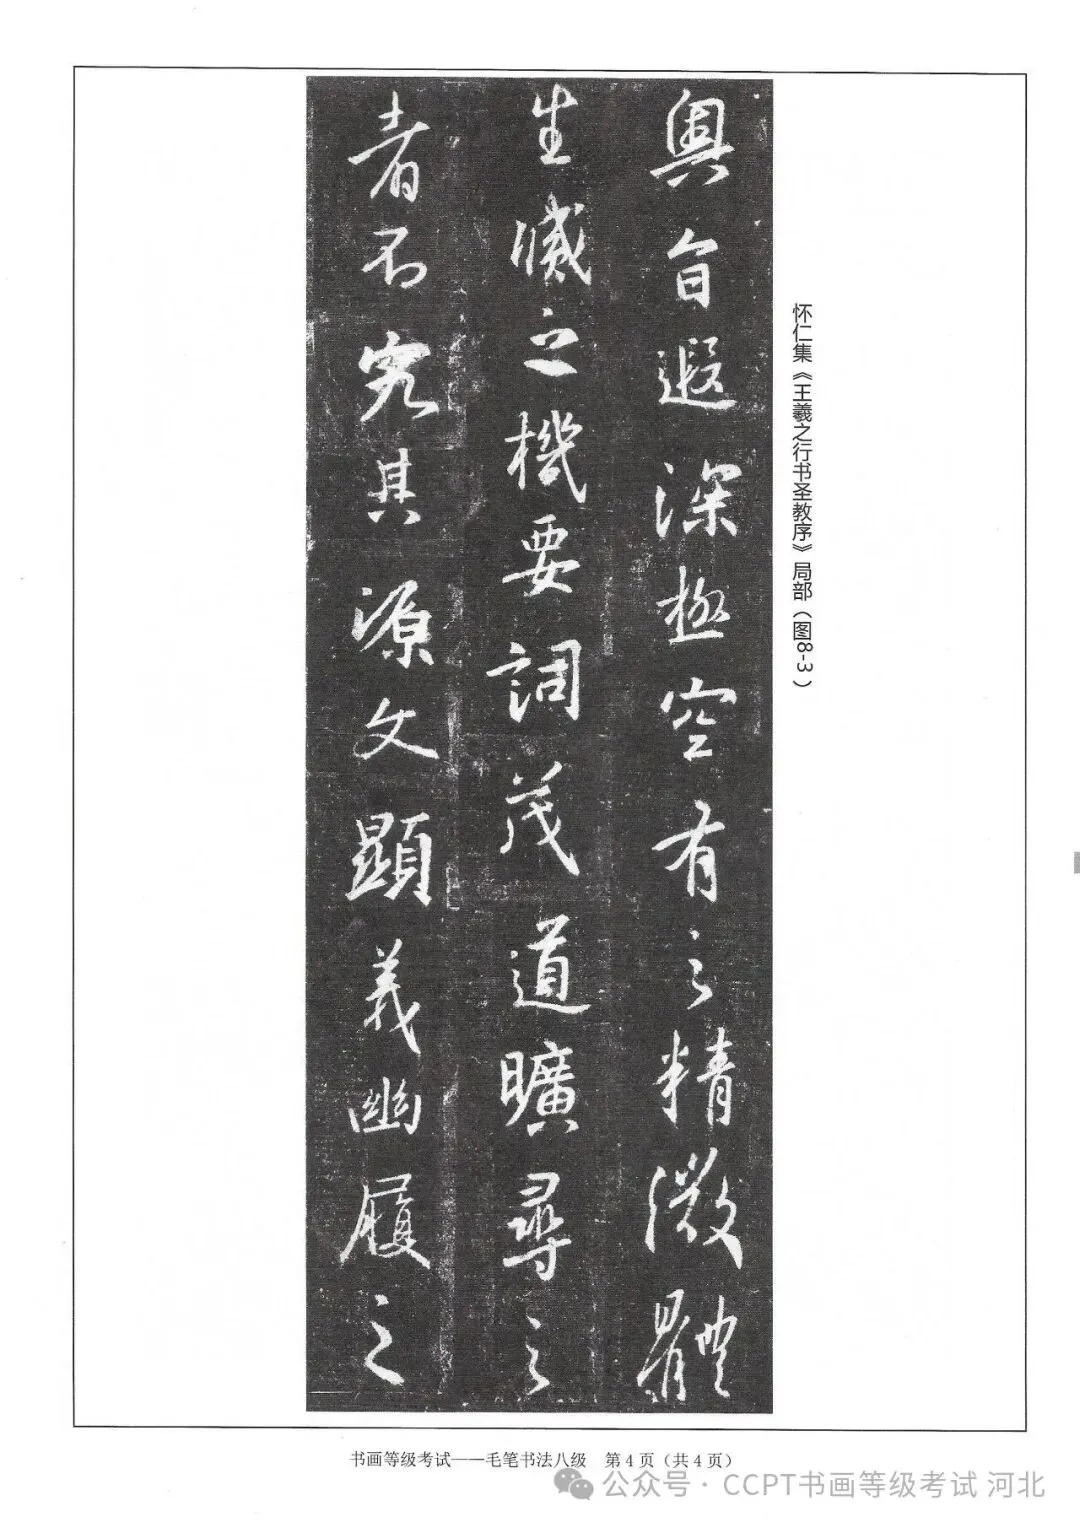 怀仁集《王羲之行书圣教序》局部（图8-3）
奥旨遐深極空有之精微體
生滅之機要詞茂道曠尋之
者不究其源文顯義幽履之
书画等级考试——毛笔书法八级 第4页（共4页）
公众号·CCPT书画等级考试 河北